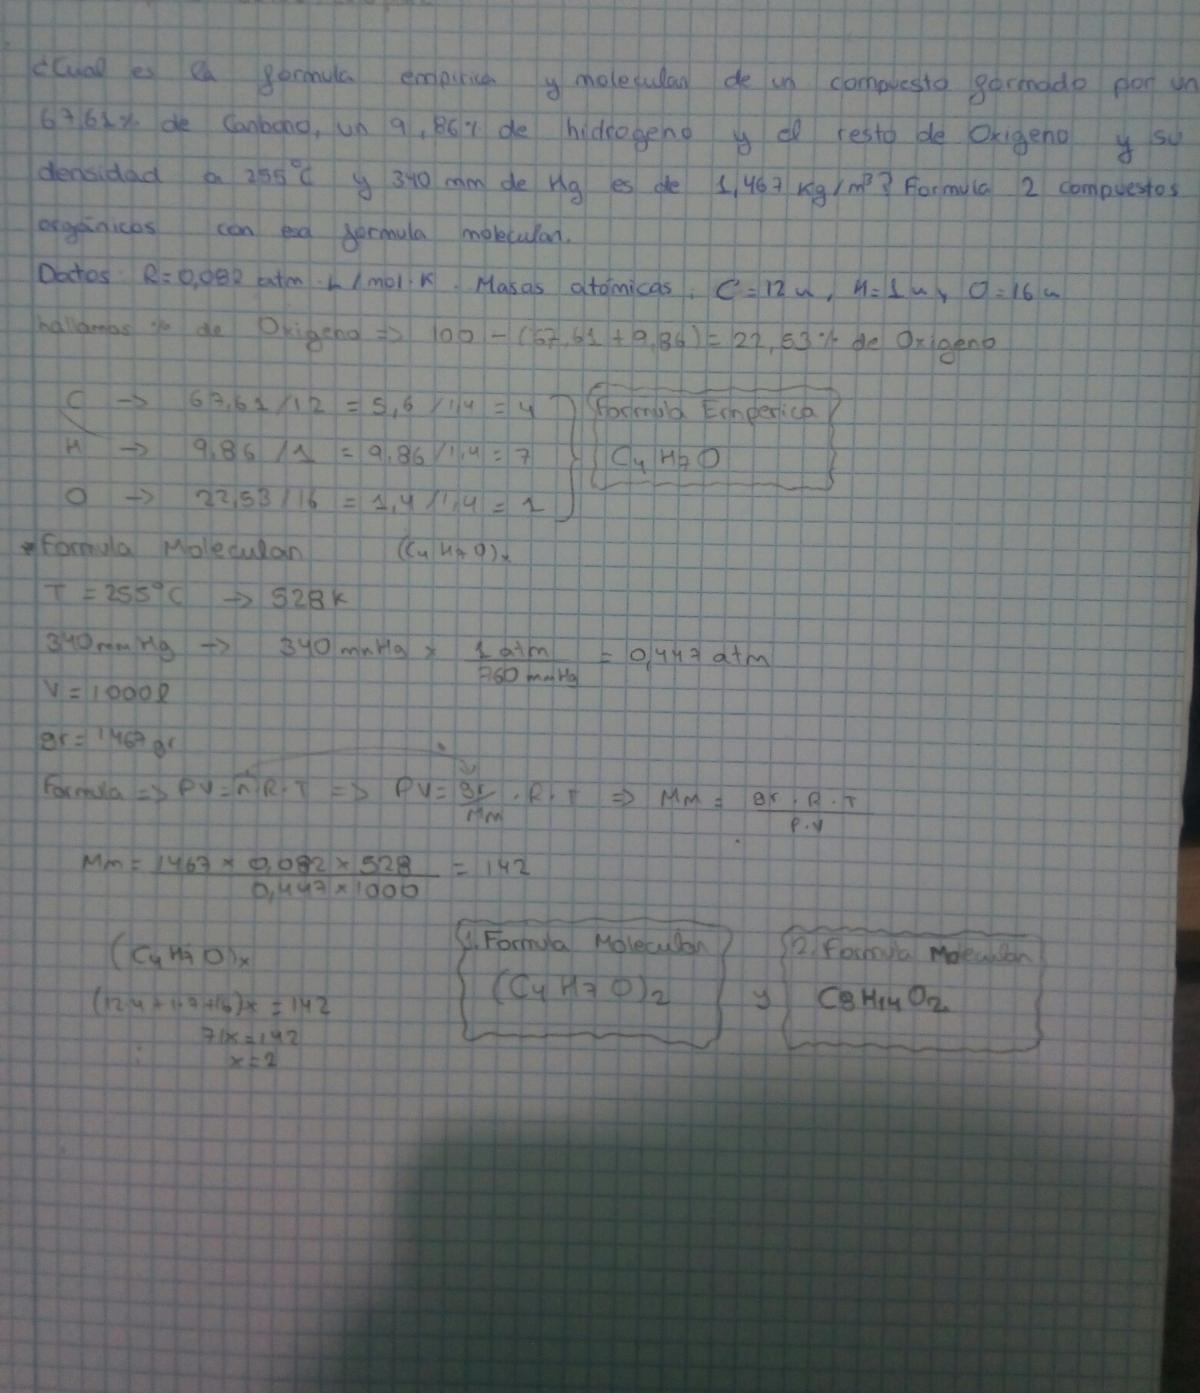 ¿Cual es la formula empirica y molecular de un compuesto formado por un
67,61% de Carbono, un 9,86% de hidrogeno y el resto de Oxigeno y su
densidad a 255°C y 340 mm de Hg es de 1,467 Kg/m³? Formula 2 compuestos
orgánicos con esa formula molecular.
Datos: R=0,082 atm·L/mol·K. Masas atómicas: C=12u, H=1u, O=16u
hallamos % de Oxigeno => 100 - (67,61 + 9,86) = 22,53% de Oxigeno
C -> 67,61/12 = 5,6/1,4 = 4
Formula Emperica
H -> 9,86/1 = 9,86/1,4 = 7
C4H7O
O -> 22,53/16 = 1,4/1,4 = 1
*Formula Molecular (C4H7O)x
T = 255°C -> 528K
340mmHg -> 340mmHg × 1 atm / 760 mmHg = 0,447 atm
V = 1000l
gr = 1467gr
Formula => PV=n·R·T => PV= gr/Mm · R · T => Mm = gr · R · T / P·V
Mm = 1467 × 0,082 × 528 / 0,447 × 1000 = 142
(C4H7O)x
1. Formula Molecular
2. Formula Molecular
(12·4+1·7+16)x = 142
(C4H7O)2 y C8H14O2
71x=142
x=2